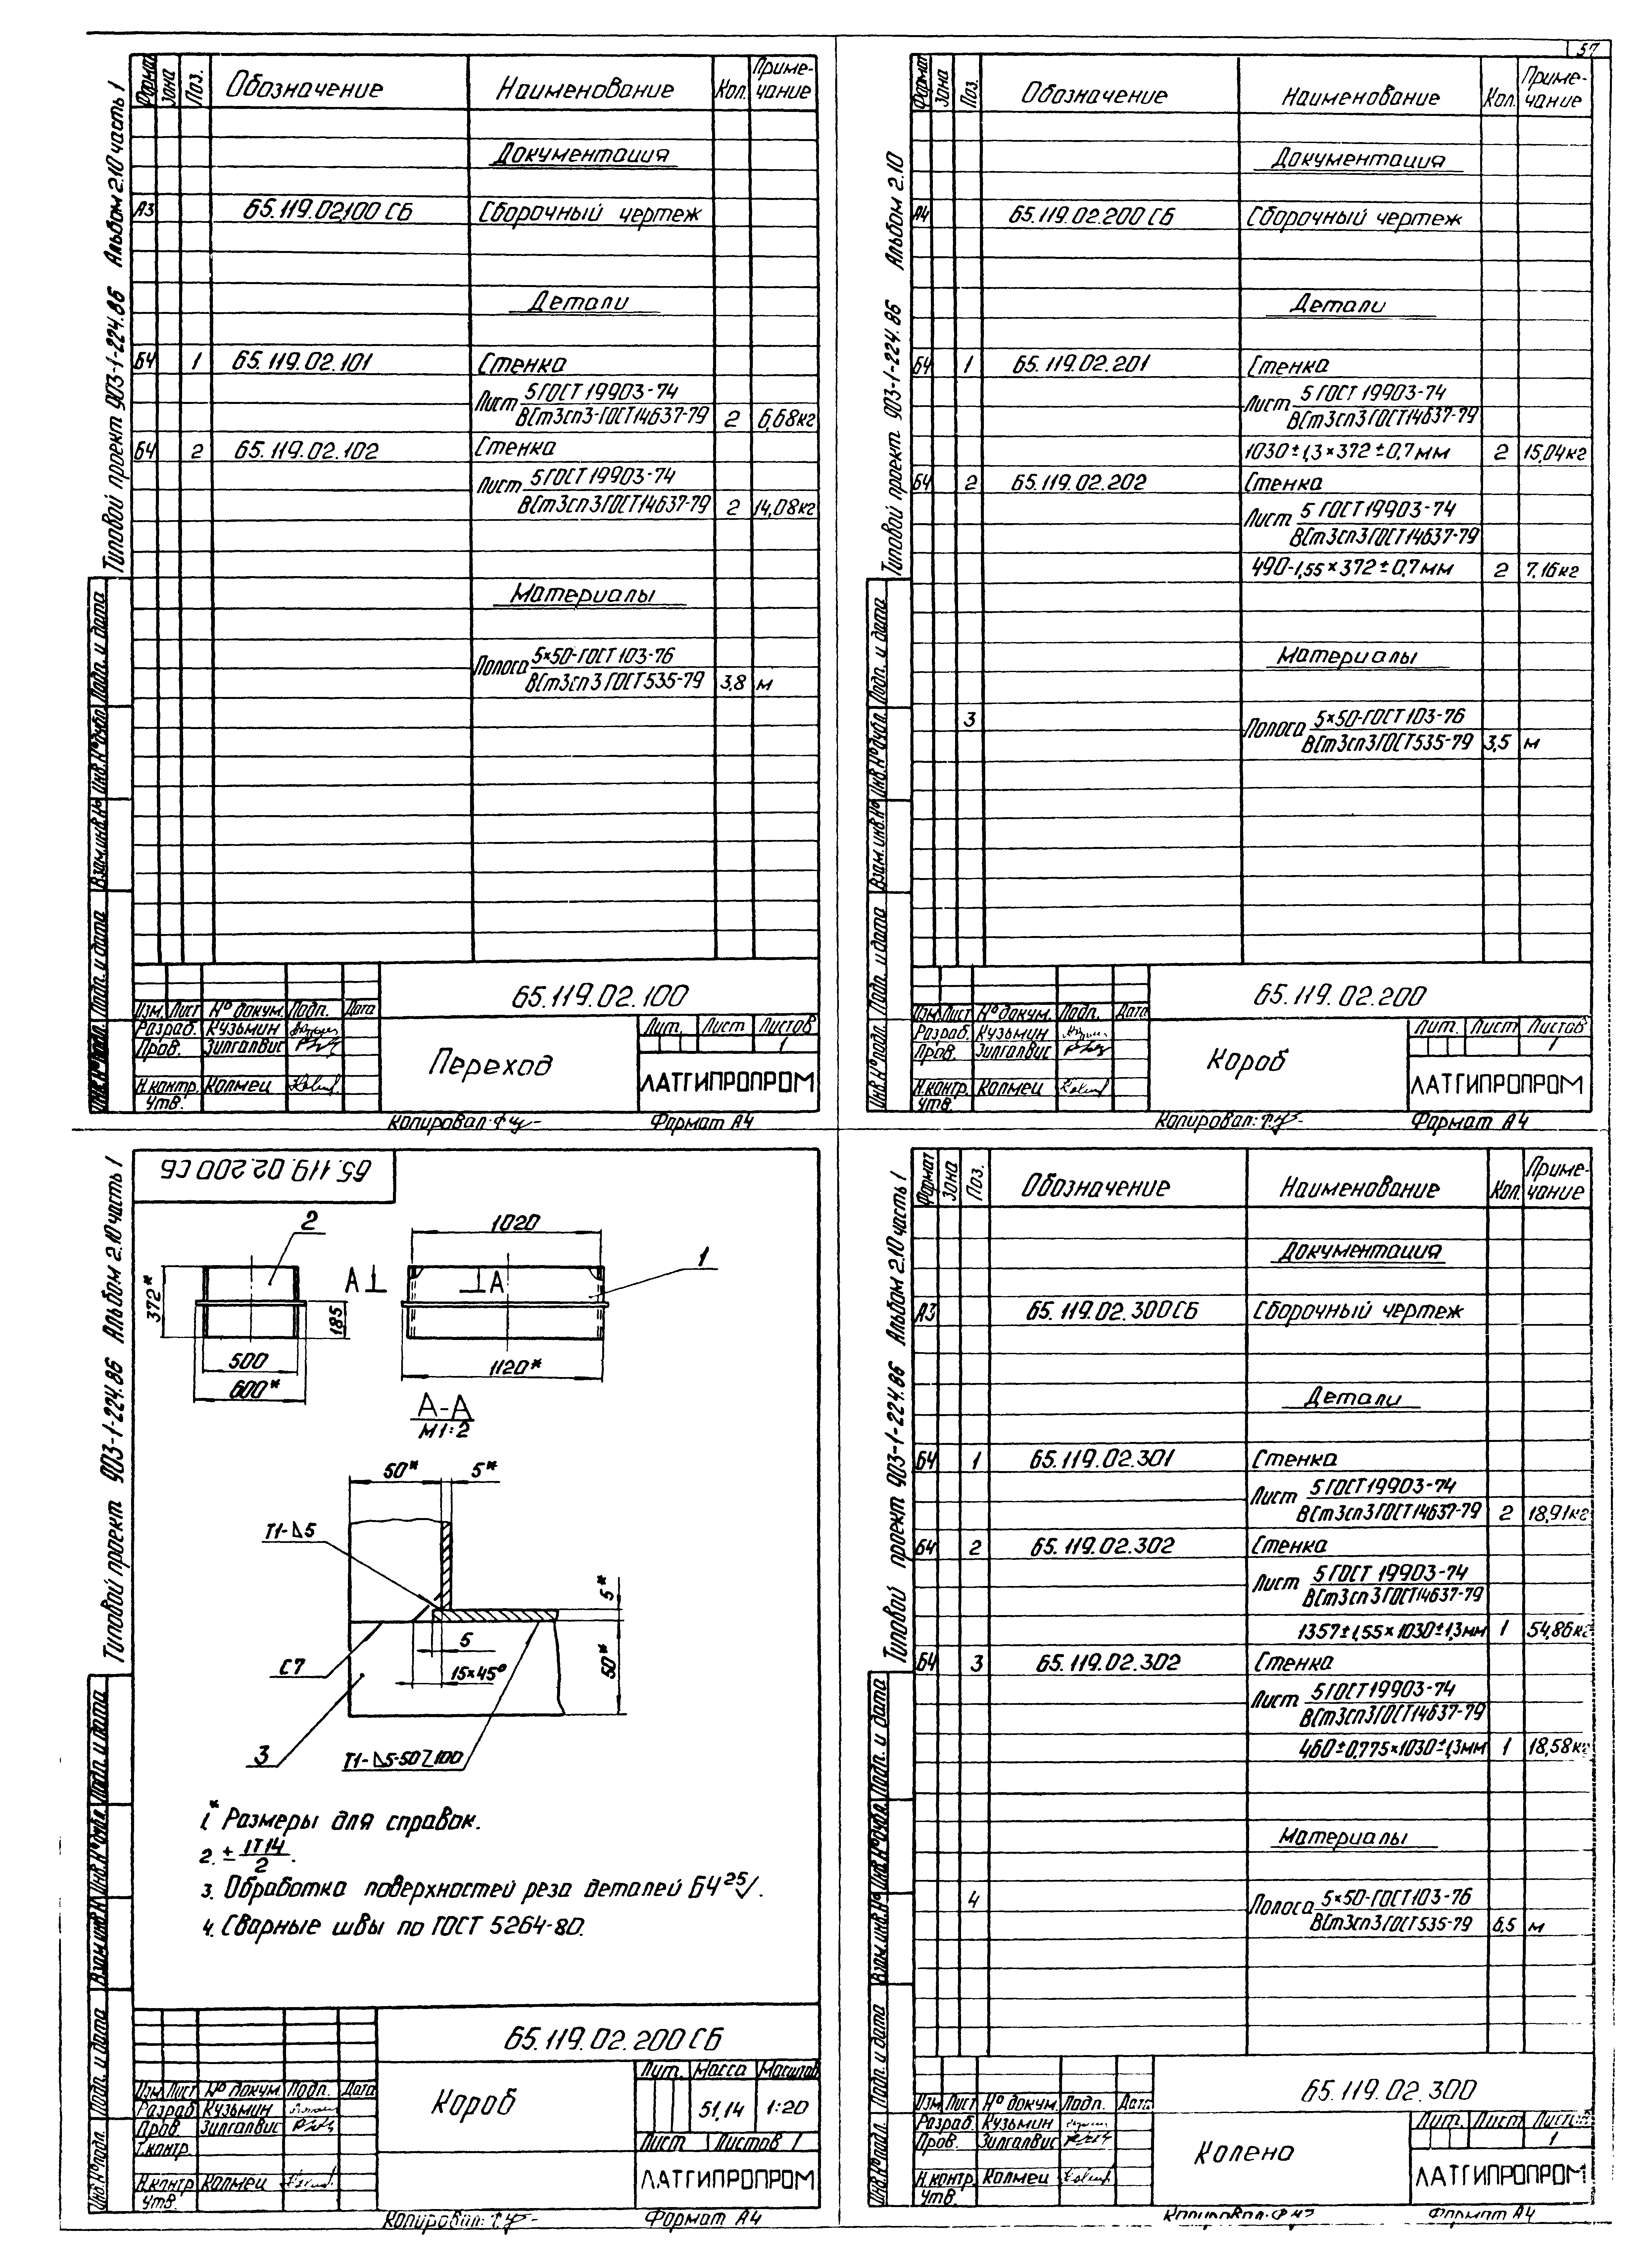 57
Типовой проект 903-1-224.86 Альбом 2.10 часть 1
Формат Зона Поз. Обозначение Наименование Кол. Приме-
чание
Документация
А3 65.119.02.100 СБ Сборочный чертеж
Детали
БЧ 1 65.119.02.101 Стенка
Лист 5 ГОСТ 19903-74
ВСт3сп3-ГОСТ14637-79 2 6,68кг
БЧ 2 65.119.02.102 Стенка
Лист 5 ГОСТ 19903-74
ВСт3сп3 ГОСТ14637-79 2 14,08кг
Материалы
Полоса 5×50-ГОСТ 103-76
ВСт3сп3 ГОСТ535-79 3,8 м
Инв.№ подл. Подп. и дата Взам.инв.№ Инв.№ дубл. Подп. и дата
65.119.02.100
Изм. Лист № докум. Подп. Дата
Разраб. Кузьмин
Пров. Зилгалвис
Н.контр. Колмец
Утв.
Переход
Лит. Лист Листов
1
ЛАТГИПРОПРОМ
Копировал: Формат А4
Типовой проект 903-1-224.86 Альбом 2.10
Формат Зона Поз. Обозначение Наименование Кол. Приме-
чание
Документация
А4 65.119.02.200 СБ Сборочный чертеж
Детали
БЧ 1 65.119.02.201 Стенка
Лист 5 ГОСТ 19903-74
ВСт3сп3 ГОСТ14637-79
1030±1,3×372±0,7мм 2 15,04кг
БЧ 2 65.119.02.202 Стенка
Лист 5 ГОСТ 19903-74
ВСт3сп3 ГОСТ14637-79
490-1,55×372±0,7мм 2 7,16кг
Материалы
3 Полоса 5×50-ГОСТ 103-76
ВСт3сп3 ГОСТ535-79 3,5 м
Инв.№ подл. Подп. и дата Взам.инв.№ Инв.№ дубл. Подп. и дата
65.119.02.200
Изм. Лист № докум. Подп. Дата
Разраб. Кузьмин
Пров. Зилгалвис
Н.контр. Колмец
Утв.
Короб
Лит. Лист Листов
1
ЛАТГИПРОПРОМ
Копировал: Формат А4
Типовой проект 903-1-224.86 Альбом 2.10 часть 1
65.119.02.200 СБ
2
1020
1
372*
А А
185
500
600*
1120*
А-А
М1:2
50* 5*
Т1-⊿5
5*
5
С7
15×45°
50*
3
Т1-⊿5-50Z100
1* Размеры для справок.
2. ± IT14
2.
3. Обработка поверхностей реза деталей БЧ 25√.
4. Сварные швы по ГОСТ 5264-80.
Инв.№ подл. Подп. и дата Взам.инв.№ Инв.№ дубл. Подп. и дата
65.119.02.200 СБ
Изм. Лист № докум. Подп. Дата
Разраб. Кузьмин
Пров. Зилгалвис
Т.контр.
Н.контр. Колмец
Утв.
Короб
Лит. Масса Масштаб
51,14 1:20
Лист Листов 1
ЛАТГИПРОПРОМ
Копировал: Формат А4
Типовой проект 903-1-224.86 Альбом 2.10 часть 1
Формат Зона Поз. Обозначение Наименование Кол. Приме-
чание
Документация
А3 65.119.02.300СБ Сборочный чертеж
Детали
БЧ 1 65.119.02.301 Стенка
Лист 5 ГОСТ19903-74
ВСт3сп3 ГОСТ14637-79 2 18,91кг
БЧ 2 65.119.02.302 Стенка
Лист 5 ГОСТ 19903-74
ВСт3сп3 ГОСТ14637-79
1357±1,55×1030±1,3мм 1 54,86кг
БЧ 3 65.119.02.302 Стенка
Лист 5 ГОСТ19903-74
ВСт3сп3 ГОСТ14637-79
460±0,775×1030±1,3мм 1 18,58кг
Материалы
4 Полоса 5×50-ГОСТ103-76
ВСт3сп3 ГОСТ535-79 6,5 м
Инв.№ подл. Подп. и дата Взам.инв.№ Инв.№ дубл. Подп. и дата
65.119.02.300
Изм. Лист № докум. Подп. Дата
Разраб. Кузьмин
Пров. Зилгалвис
Н.контр. Колмец
Утв.
Колено
Лит. Лист Листов
1
ЛАТГИПРОПРОМ
Копировал: Формат А4